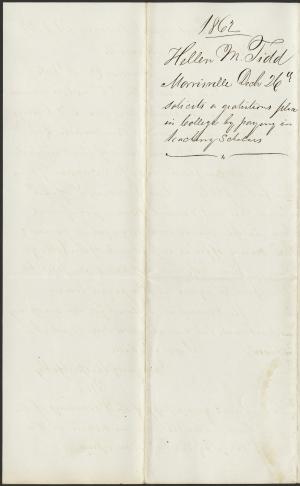 1862
Hellen M. Tidd
Morrisville Decbr 26th
solicits a gratuitous place
in College by paying in
teaching Scholars